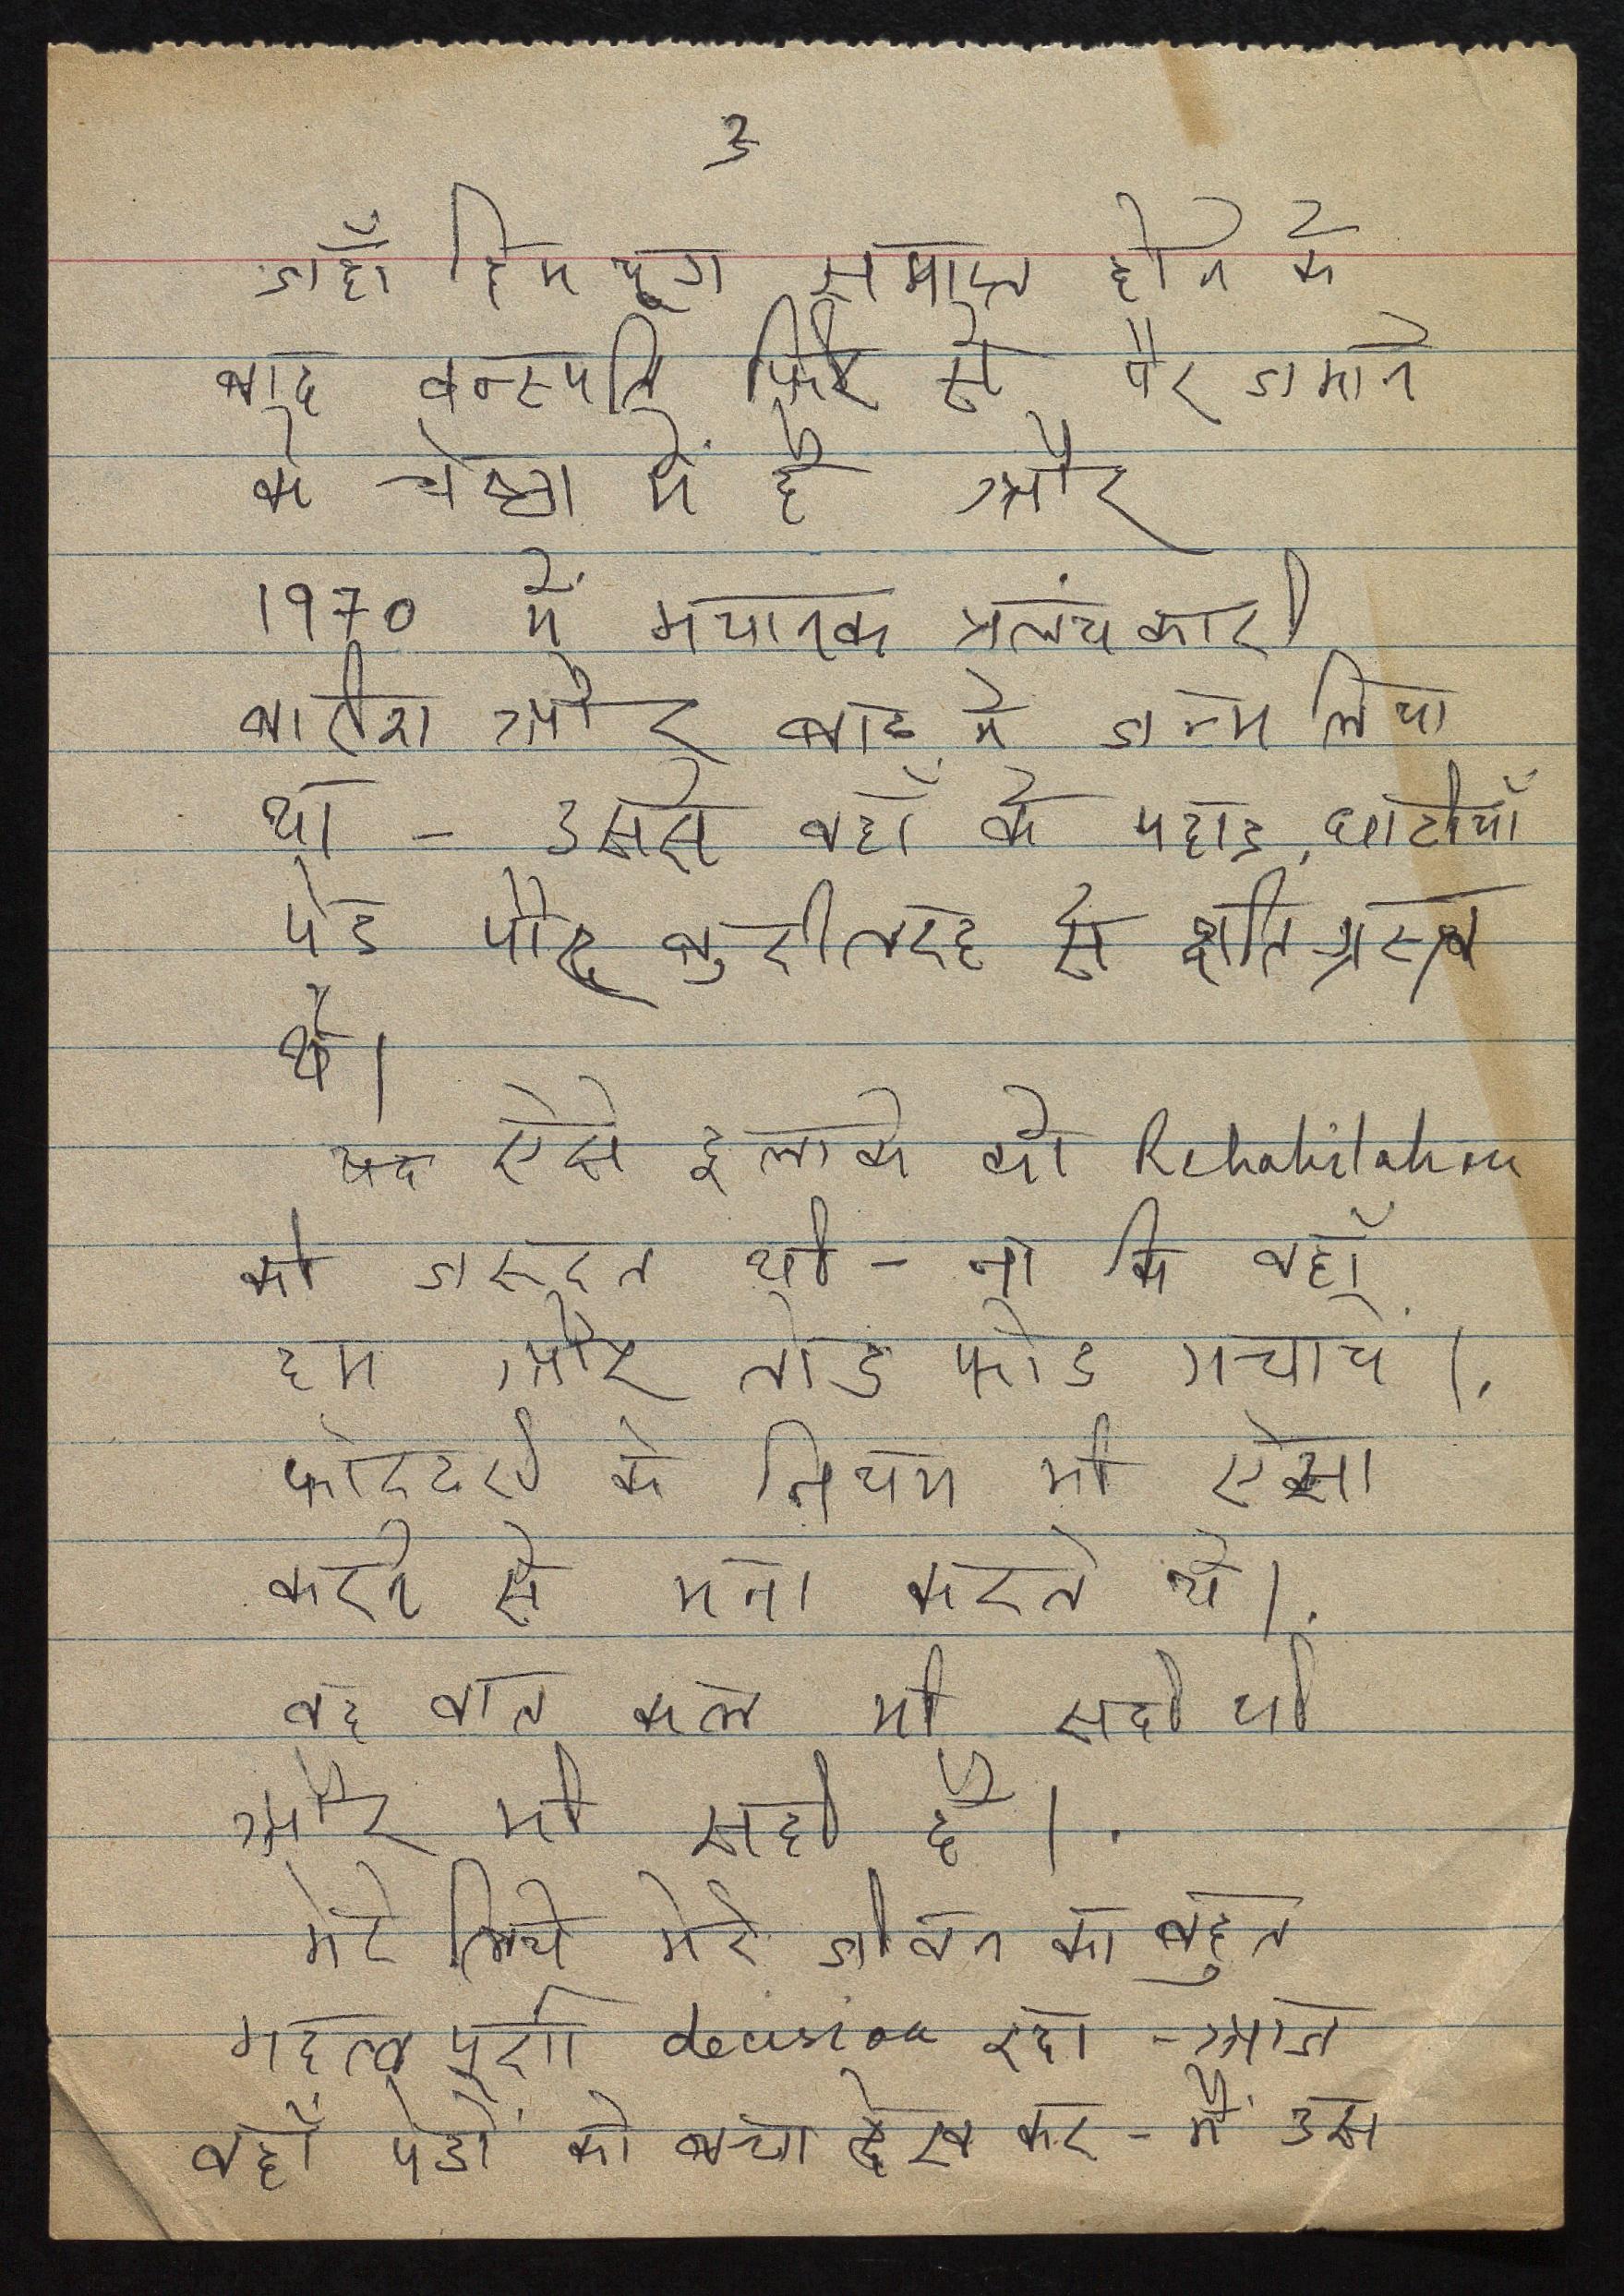 3
जहाँ हिमयुग समाप्त होने के
बाद वनस्पति फिर से पैर जमाने
के चेष्ठा में है और
1970 में भयानक प्रलंयकारी
बारीश और बाढ ने जन्म लिया
था - उससे वहाँ के पहाड, घाटीयाँ
पेड पौद बुरी तरह से क्षतिग्रस्त
थे।
ऐसे इलाके को Rehabilitation
की जरूरत थी - ना कि वहाँ
हम और तोड फोड मचायें।
फोरेस्टरी के नियम भी ऐसा
करने से मना करते थे।
वह बात कल भी सही थी
और भी सही है।
मेरे लिये मेरे जीवन का बहुत
महत्वपूर्ण decision रहा - आज
वहाँ पेडों को बचा देख कर - मैं उस